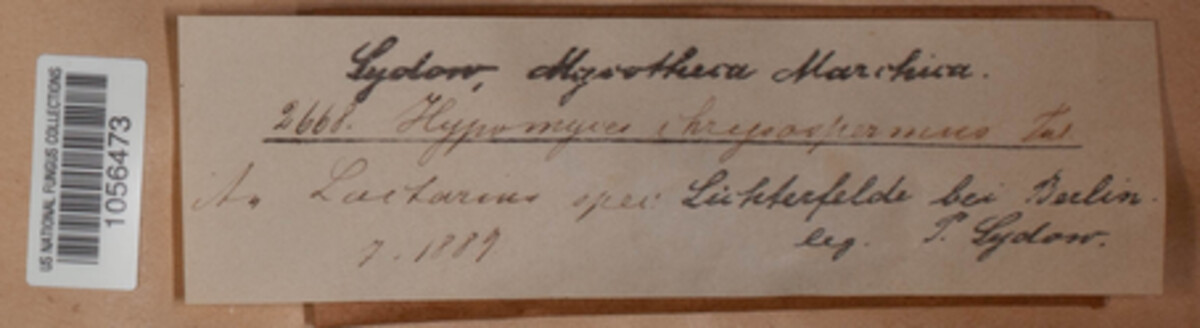 US NATIONAL FUNGUS COLLECTIONS
1056473
Sydow, Mycotheca Marchica.
2668. Hypomyces chrysospermus Tul.
An Lactarius spec. Lichterfelde bei Berlin.
7. 1889 leg. P. Sydow.